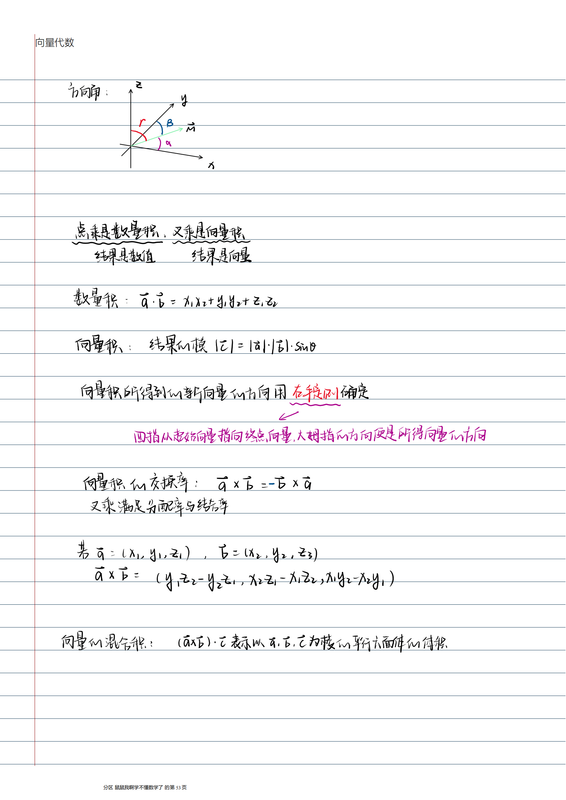 向量代数
方向角：
z
y
r
β
M
α
x
点乘是数量积，叉乘是向量积
结果是数值 结果是向量
数量积：a⃗·b⃗ = x₁x₂+y₁y₂+z₁z₂
向量积：结果的模 |c⃗| = |a⃗|·|b⃗|·sinθ
向量积所得到的新向量的方向用右手定则确定
四指从起始向量指向终点向量，大拇指的方向便是所得向量的方向
向量积的交换率：a⃗ × b⃗ = -b⃗ × a⃗
叉乘满足分配率与结合率
若 a⃗ = (x₁, y₁, z₁)，b⃗ = (x₂, y₂, z₃)
a⃗ × b⃗ = (y₁z₂-y₂z₁, x₂z₁-x₁z₂, x₁y₂-x₂y₁)
向量的混合积：(a⃗×b⃗)·c⃗ 表示以 a⃗, b⃗, c⃗ 为棱的平行六面体的体积
分区 鼠鼠我啊学不懂数学了 的第 53 页